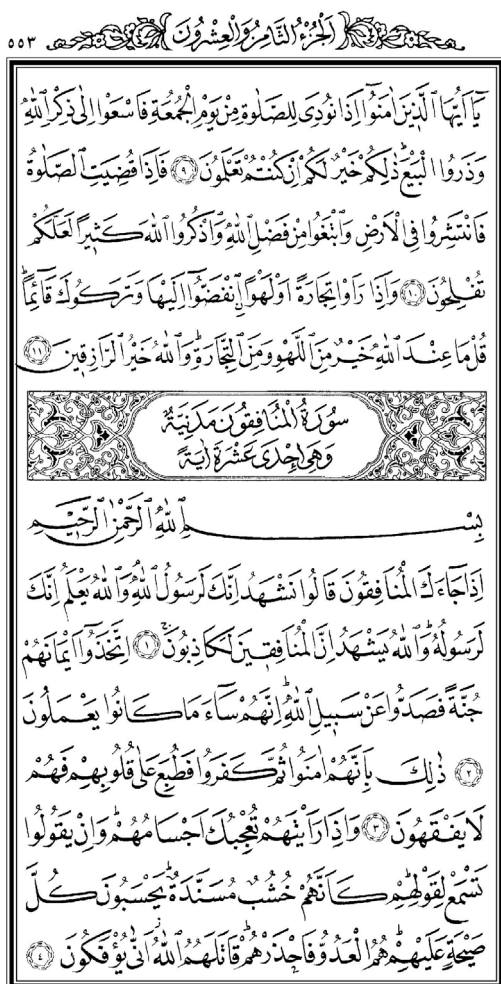 اَلْجُزْءُ الثَّامِنُ وَالْعِشْرُونَ ٥٥٣
يَٓا اَيُّهَا الَّذٖينَ اٰمَنُٓوا اِذَا نُودِىَ لِلصَّلٰوةِ مِنْ يَوْمِ الْجُمُعَةِ فَاسْعَوْا اِلٰى ذِكْرِ اللّٰهِ
وَذَرُوا الْبَيْعَؕ ذٰلِكُمْ خَيْرٌ لَكُمْ اِنْ كُنْتُمْ تَعْلَمُونَ ﴿٩﴾ فَاِذَا قُضِيَتِ الصَّلٰوةُ
فَانْتَشِرُوا فِى الْاَرْضِ وَابْتَغُوا مِنْ فَضْلِ اللّٰهِ وَاذْكُرُوا اللّٰهَ كَثٖيراً لَعَلَّكُمْ
تُفْلِحُونَ ﴿١٠﴾ وَاِذَا رَاَوْا تِجَارَةً اَوْ لَهْواًۨ انْفَضُّٓوا اِلَيْهَا وَتَرَكُوكَ قَٓائِماًؕ
قُلْ مَا عِنْدَ اللّٰهِ خَيْرٌ مِنَ اللَّهْوِ وَمِنَ التِّجَارَةِؕ وَاللّٰهُ خَيْرُ الرَّازِقٖينَ ﴿١١﴾
سُورَةُ الْمُنَافِقُونَ مَدَنِيَّةٌ
وَهِىَ اِحْدٰى عَشْرَةَ اٰيَةً
بِسْمِ اللّٰهِ الرَّحْمٰنِ الرَّحٖيمِ
اِذَا جَٓاءَكَ الْمُنَافِقُونَ قَالُوا نَشْهَدُ اِنَّكَ لَرَسُولُ اللّٰهِۘ وَاللّٰهُ يَعْلَمُ اِنَّكَ
لَرَسُولُهُؕ وَاللّٰهُ يَشْهَدُ اِنَّ الْمُنَافِقٖينَ لَكَاذِبُونَۚ ﴿١﴾ اِتَّخَذُٓوا اَيْمَانَهُمْ
جُنَّةً فَصَدُّوا عَنْ سَبٖيلِ اللّٰهِؕ اِنَّهُمْ سَٓاءَ مَا كَانُوا يَعْمَلُونَ
﴿٢﴾ ذٰلِكَ بِاَنَّهُمْ اٰمَنُوا ثُمَّ كَفَرُوا فَطُبِعَ عَلٰى قُلُوبِهِمْ فَهُمْ
لَا يَفْقَهُونَ ﴿٣﴾ وَاِذَا رَاَيْتَهُمْ تُعْجِبُكَ اَجْسَامُهُمْؕ وَاِنْ يَقُولُوا
تَسْمَعْ لِقَوْلِهِمْؕ كَاَنَّهُمْ خُشُبٌ مُسَنَّدَةٌؕ يَحْسَبُونَ كُلَّ
صَيْحَةٍ عَلَيْهِمْؕ هُمُ الْعَدُوُّ فَاحْذَرْهُمْؕ قَاتَلَهُمُ اللّٰهُؗ اَنّٰى يُؤْفَكُونَ ﴿٤﴾